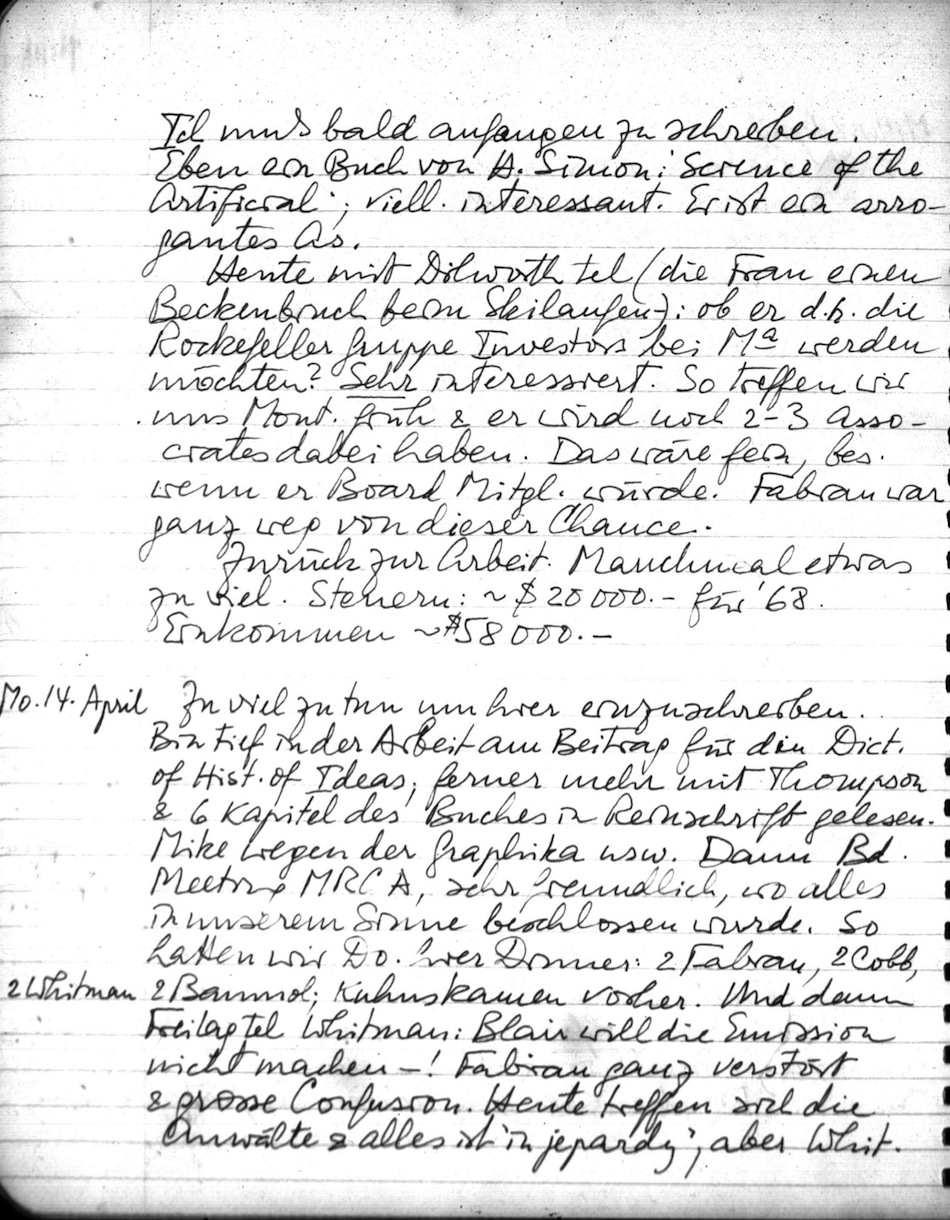 Ich muß bald anfangen zu schreiben.
Eben ein Buch von H. Simon: Science of the
Artificial'; viell. interessant. Er ist ein arro-
gantes As.
Heute mit Dilworth tel (die Frau einen
Beckenbruch beim Skilaufen): ob er d.h. die
Rockefeller Gruppe Investors bei Ma werden
möchten? Sehr interessiert. So treffen wir
uns Mont. früh & er wird noch 2-3 Asso-
ciates dabei haben. Das wäre fein, bes.
wenn er Board Mitgl. würde. Fabian war
ganz weg von dieser Chance.
Zurück zur Arbeit. Manchmal etwas
zu viel. Steuern: ~ $ 20 000.- für '68.
Einkommen ~ $58 000.-
Mo. 14. April Zu viel zu tun um hier einzuschreiben.
Bin tief in der Arbeit am Beitrag für den Dict.
of Hist. of Ideas; ferner mehr mit Thompson
& 6 Kapitel des Buches in Reinschrift gelesen.
Mike wegen der Graphika usw. Dann Bd.
Meeting MRCA, sehr freundlich, wo alles
in unserem Sinne beschlossen wurde. So
hatten wir Do. hier Dinner: 2 Fabian, 2 Cobb,
2 Whitman 2 Baumol; Kuhns kamen vorher. Und dann
Freitag tel Whitman: Blair will die Emission
nicht machen -! Fabian ganz verstört
& grosse Confusion. Heute treffen sich die
Anwälte & alles ist 'in jepardy', aber Whit.